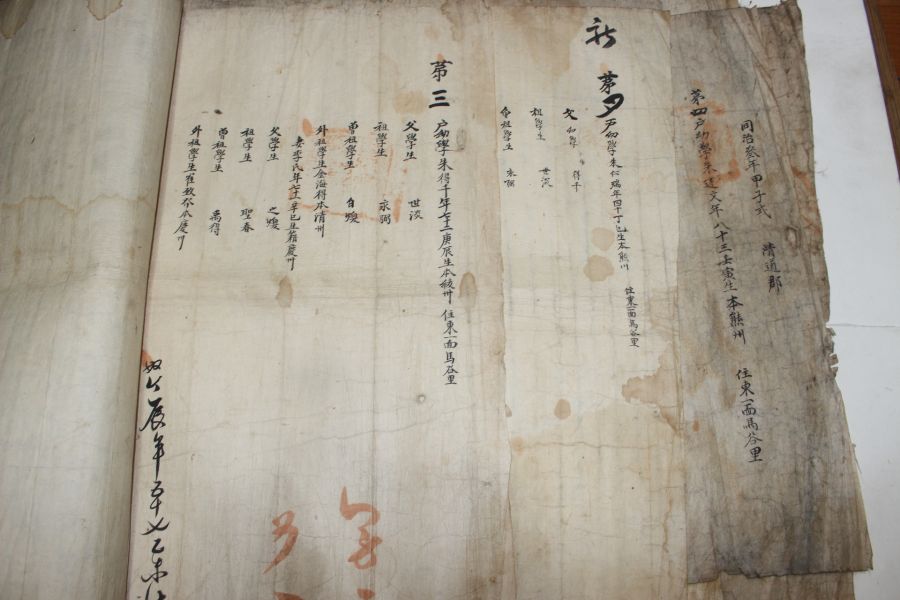 同治叁年甲子式 清道郡
第四戶幼學朱道文年八十三壬寅生本熊州 住東一面馬谷里
新 第四戶幼學朱仁瑞年四十丁巳生本熊川 住東一面馬谷里
父幼學 得千
祖學生 世淡
曾祖學生 永弼
第三 戶幼學朱得千年七十二庚辰生本綾州 住東一面馬谷里
父學生 世淡
祖學生 永弼
曾祖學生 自煥
外祖學生金海得本清州
妻李氏年七十一辛巳生籍慶州
父學生 之煥
祖學生 聖春
曾祖學生 禹得
外祖學生崔致 本慶州
辰年五十七乙未